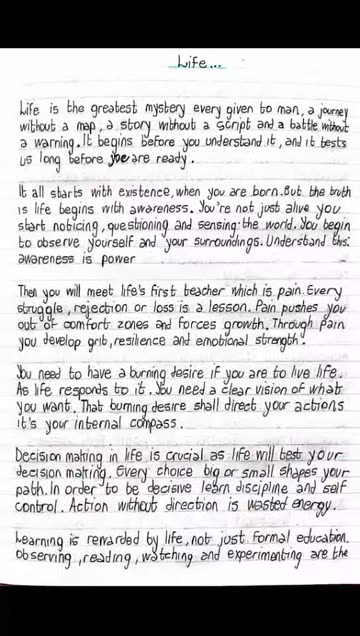 Life...
Life is the greatest mystery every given to man, a journey
without a map, a story without a script and a battle without
a warning. It begins before you understand it, and it tests
us long before you are ready.
It all starts with existence, when you are born. But the truth
is life begins with awareness. You're not just alive you
start noticing, questioning and sensing the world. You begin
to observe yourself and your surroundings. Understand this:
awareness is power
Then you will meet life's first teacher which is pain. Every
struggle, rejection or loss is a lesson. Pain pushes you
out of comfort zones and forces growth. Through pain
you develop grit, resilience and emotional strength.
You need to have a burning desire if you are to live life.
As life responds to it. You need a clear vision of what
you want. That burning desire shall direct your actions
it's your internal compass.
Decision making in life is crucial as life will test your
decision making. Every choice big or small shapes your
path. In order to be decisive learn discipline and self
control. Action without direction is wasted energy.
Learning is rewarded by life, not just formal education.
Observing, reading, watching and experimenting are the